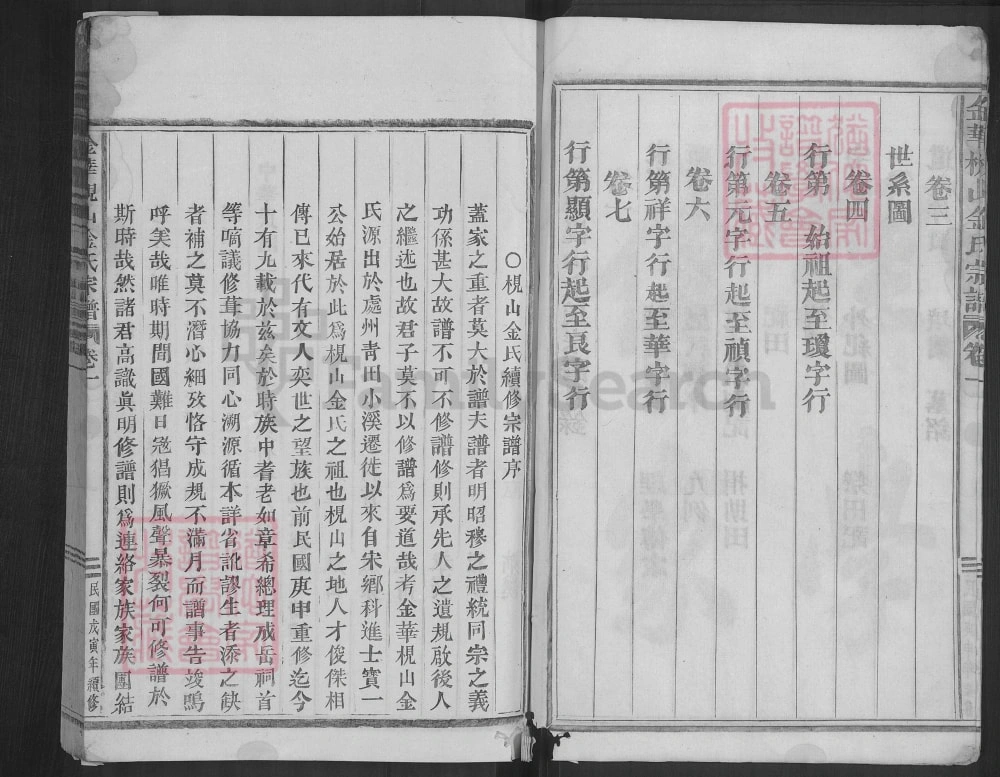 金華梘山金氏宗譜 卷一
卷三
世系圖
卷四
行第 始祖起至瓊字行
卷五
行第元字行起至禎字行
卷六
行第祥字行起至華字行
卷七
行第顯字行起至良字行
○梘山金氏續修宗譜序
蓋家之重者莫大於譜夫譜者明昭穆之禮統同宗之義
功係甚大故譜不可不修譜修則承先人之遺規啟後人
之繼述也故君子莫不以修譜爲要道哉考金華梘山金
氏源出於處州青田小溪遷徙以來自宋鄉科進士寶一
公始居於此爲梘山金氏之祖也梘山之地人才俊傑相
傳已來代有文人奕世之望族也前民國庚申重修迄今
十有九載於茲矣於時族中耆老如章希總理成岳祠首
等嘀議修葺協力同心溯源循本詳省訛謬生者添之缺
者補之莫不潛心細攷恪守成規不滿月而譜事告竣嗚
呼美哉唯時期間國難日寇猖獗風聲暴裂何可修譜於
斯時哉然諸君高識眞明修譜則爲連絡家族家族團結
金華梘山金氏宗譜 卷一
民國戊寅年續修
FamilySearch